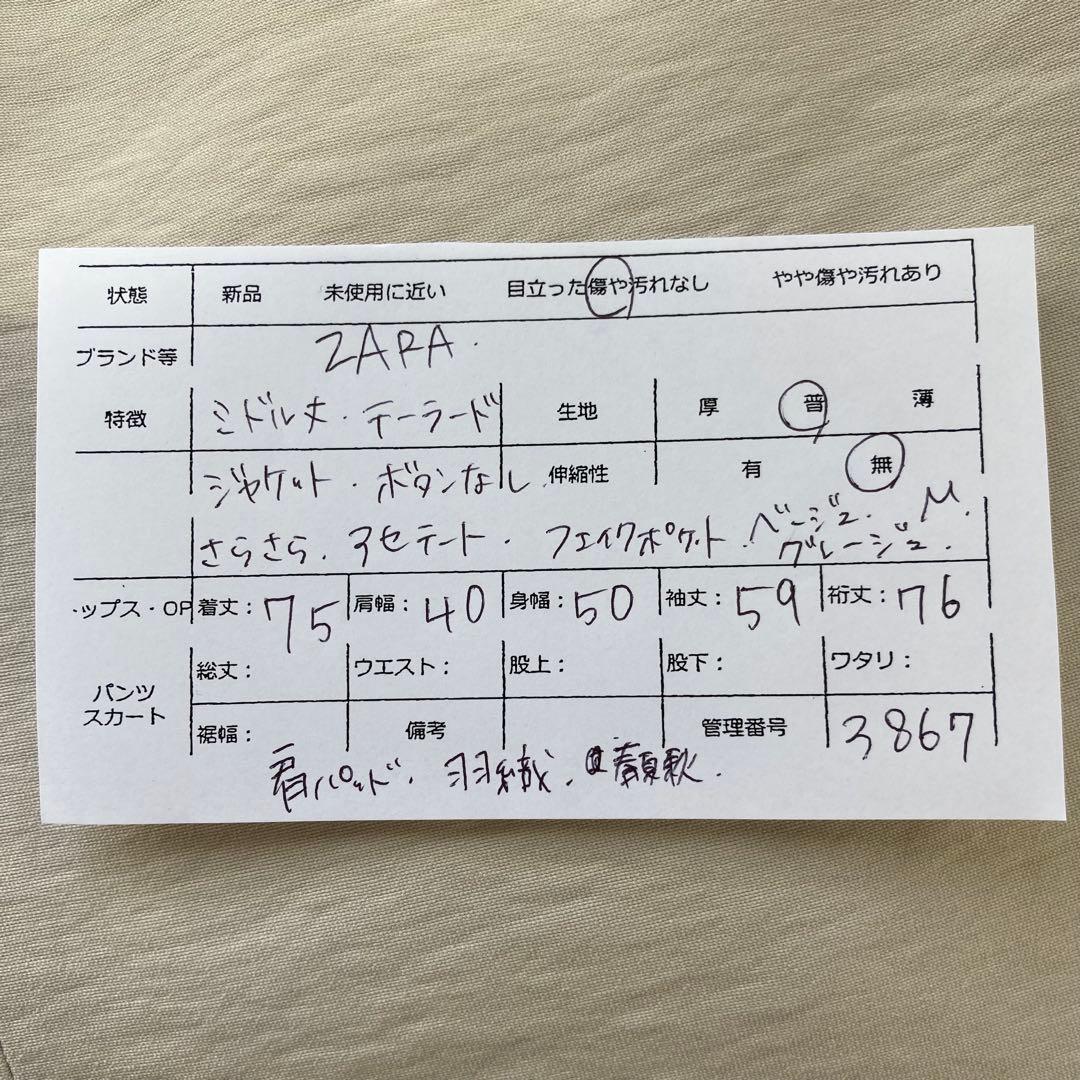 状態 新品 未使用に近い 目立った傷や汚れなし やや傷や汚れあり
ブランド等 ZARA.
特徴 ミドル丈・テーラード 生地 厚 普 薄
ジャケット・ボタンなし 伸縮性 有 無
さらさら、アセテート・フェイクポケット、ベージュ、M.
グレージュ.
ップス・OP 着丈：75 肩幅：40 身幅：50 袖丈：59 裄丈：76
パンツ スカート 総丈： ウエスト： 股上： 股下： ワタリ：
裾幅： 備考 管理番号 3867
肩パッド、羽織、